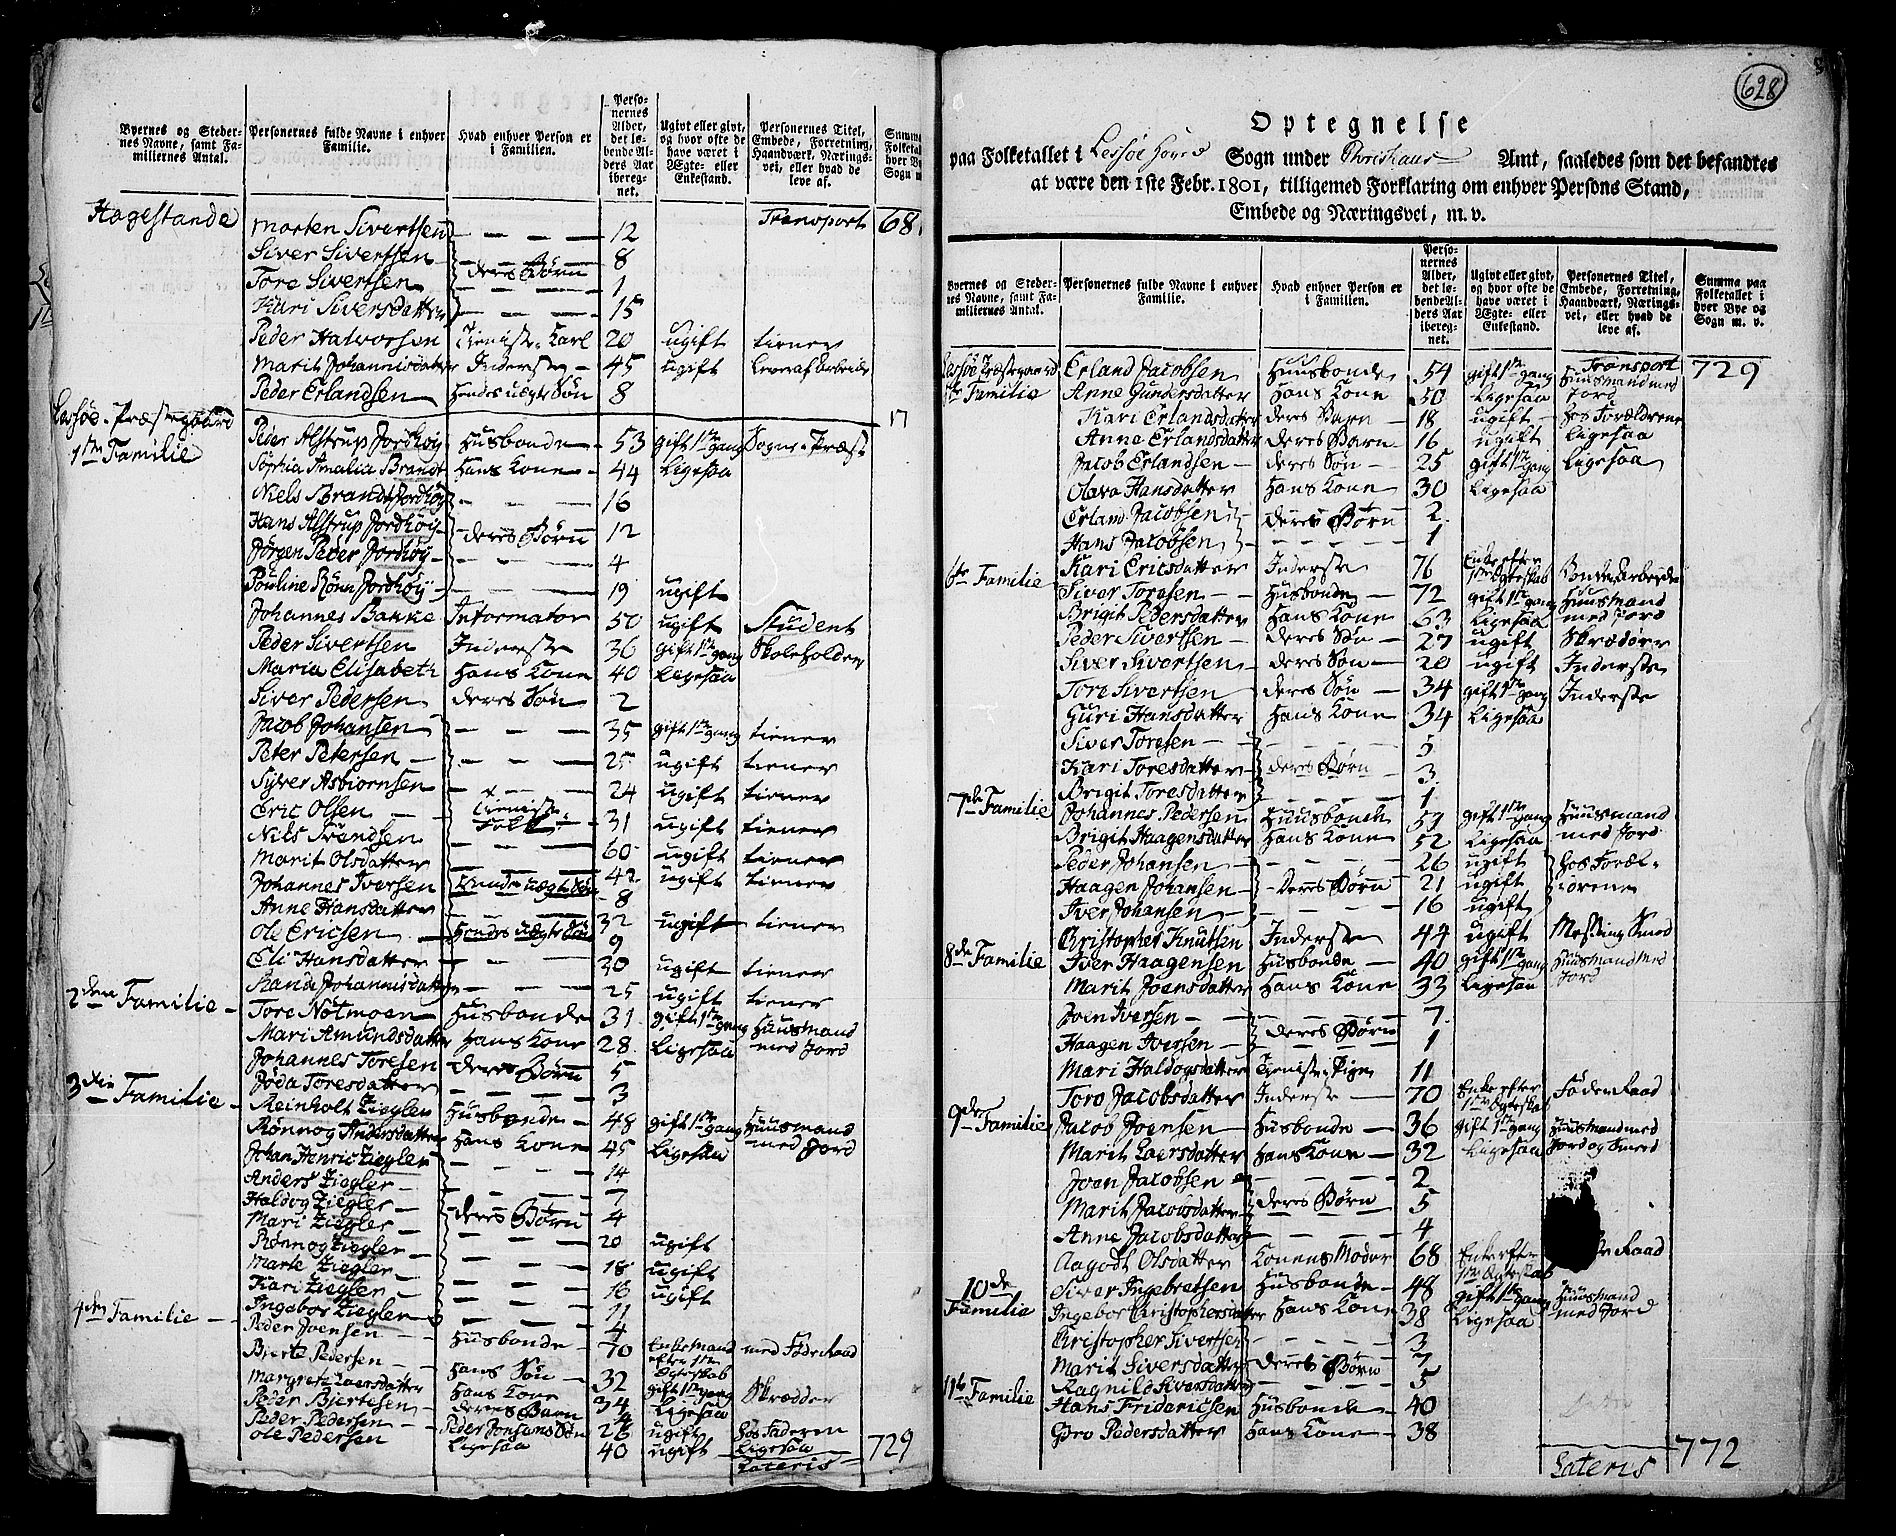 Byernes og Steder-
nes Navne, samt Fa-
miliernes Antal.
Personernes fulde Navne i enhver
Familie.
Hvad enhver Person er
i Familien.
Perso-
nernes
Alder,
det le-
bende Al-
ders Aar
ibereg-
net.
Ugivt eller givt,
og hvor ofte de
have været i
Ægte- eller
Enkestand.
Personernes Titel,
Embede, Forretning,
Haandværk, Nærings-
vei, eller hvad de
leve af.
Summa
Folketal
hver By
Sogn m
Hagestande Morten Sivertsen 12 Transport 68
Siver Sivertsen 8
Tore Sivertsen deres Børn 1
Kari Siversdatter 15
Peder Halvorsen Tieniste Karl 20 ugift tiener
Marit Johannisdatter Inderste 45 ugift Lever af Arbeide
Peder Erlandsen Hendes uægte Søn 8
Lessøe Præstegaard 17
1ste Familie Peder Alstrup Jordhøy Husbonde 53 gift 1ste gang Sogne Præst
Sophia Amalia Brandt Hans Kone 44 Ligesaa
Niels Brandt Jordhøy 16
Hans Alstrup Jordhøy deres Børn 12
Jørgen Peder Jordhøy 4
Pouline Rønn Jordhøy 19 ugift
Johannes Bakke Informator 50 ugift Student
Peder Sivertsen Inderste 36 gift 1ste gang Skoleholder
Maria Elisabeth Hans Kone 40 Ligesaa
Siver Pedersen deres Søn 2
Jacob Johansen 35 gift 1ste gang tiener
Peter Petersen 25 ugift tiener
Syver Asbiørnsen 24 ugift tiener
Eric Olsen Tieniste Folk 31 ugift tiener
Nils Svendsen 60 ugift tiener
Marit Olsdatter 42 ugift tiener
Johannes Iversen Hendes uægte Søn 8
Anne Hansdatter 32 ugift tiener
Ole Ericsen Hendes uægte Søn 9
Eli Hansdatter 20 ugift tiener
Rand Johannisdatter 25 ugift tiener
2den Familie Tore Nølmoen Husbonde 31 gift 1ste gang Huusmand
Mari Amundsdatter Hans Kone 28 Ligesaa med Jord
Johannes Toresen deres Børn 5
Jøda Toresdatter 3
3die Familie Reinholt Ziegler Husbonde 48 gift 1ste gang Huusmand
Rønnog Andersdatter Hans Kone 45 Ligesaa med Jord
Johan Henric Ziegler 14
Anders Ziegler 7
Haldog Ziegler deres Børn 4
Mari Ziegler 20 ugift
Rønnog Ziegler 18 ugift
Marte Ziegler 16 ugift
Kari Ziegler 11
Ingebor Ziegler 4
4de Familie Peder Joensen Husbonde 70 Enkemand med Føde Raad
efter 1ste Ægteskab
Bierte Pedersen Hans Søn 32 gift 1ste gang Skrædder
Margrete Laersdatter Hans Kone 34 Ligesaa
Peder Biertesen deres Barn 4
Peder Pedersen Peder Jonsens Søn 26 ugift Hos Faderen
Ole Pedersen Ligesaa 40 ugift Ligesaa
Lateris 729
628
Optegnelse
paa Folketallet i Lessøe Hoved Sogn under Christians Amt, saaledes som det befandtes
at være den 1ste Febr. 1801, tilligemed Forklaring om enhver Persons Stand,
Embede og Næringsvei, m. v.
Byernes og Steder-
nes Navne, samt Fa-
miliernes Antal.
Personernes fulde Navne i enhver
Familie.
Hvad enhver Person er
i Familien.
Perso-
nernes
Alder,
det le-
bende Al-
ders Aar
ibereg-
net.
Ugivt eller givt,
og hvor ofte de
have været i
Ægte- eller
Enkestand.
Personernes Titel,
Embede, Forretning,
Haandværk, Nærings-
vei, eller hvad de
leve af.
Summa paa
Folketallet i
hver Bye og
Sogn m. v.
Transport 729
Lessøe Præstegaard Erland Jacobsen Huusbonde 54 gift 1ste gang Huusmand med
5te Familie Anne Gundersdatter Hans Kone 50 Ligesaa Jord
Kari Erlandsdatter deres Barn 18 ugift Hos Forældrene
Anne Erlandsdatter deres Barn 16 ugift Ligesaa
Jacob Erlandsen deres Søn 25 gift 1ste gang Ligesaa
Olava Hansdatter Hans Kone 30 Ligesaa
Erland Jacobsen deres Børn 2
Hans Jacobsen 1
Kari Ericsdatter Inderste 76 Enke efter 1ste Ægteskab Bonde Arbeide
6te Familie Siver Toresen Husbonde 72 gift 1ste gang Huusmand
Brigit Pedersdatter Hans Kone 63 Ligesaa med Jord
Peder Sivertsen deres Søn 27 ugift Skrædder
Siver Sivertsen deres Søn 20 ugift Inderste
Tore Sivertsen deres Søn 34 gift 1ste gang Inderste
Guri Hansdatter Hans Kone 34 Ligesaa
Siver Toresen 5
Kari Toresdatter deres Børn 3
Brigit Toresdatter 1
7de Familie Johannes Pedersen Huusbonde 59 gift 1ste gang Huusmand
Brigit Haagensdatter Hans Kone 52 Ligesaa med Jord
Peder Johansen 26 ugift Hos Foræl-
Haagen Johansen Deres Børn 21 ugift drene
Iver Johansen 16 ugift
Christopher Knutsen Inderste 44 ugift Messing Smed
8de Familie Iver Haagensen Husbonde 40 gift 1ste gang Huusmand med
Marit Joensdatter Hans Kone 33 Ligesaa Jord
Joen Iversen 7
Haagen Iversen deres Børn 1
Mari Haldogsdatter Tieniste Pige 11
Toro Jacobsdatter Inderste 70 Enke efter 1ste Ægteskab Føde Raad
9de Familie Jacob Joensen Husbonde 36 gift 1ste gang Huusmand med
Marit Laersdatter Hans Kone 32 Ligesaa Jord og Smed
Joen Jacobsen 2
Marit Jacobsdatter deres Børn 5
Anne Jacobsdatter 4
Aagodt Olsdatter Konens Moder 68 Enke efter 1ste Ægteskab Raad
10de
Familie Siver Ingebretsen Husbonde 48 gift 1ste gang Huusmand
Ingebor Christophersdatter Hans Kone 38 Ligesaa med Jord
Christopher Sivertsen 3
Marit Siversdatter deres Børn 7
Ragnild Siversdatter 5
11te Familie Hans Fridericsen Husbonde 40
Goro Pedersdatter Hans Kone 38
Lateris 772